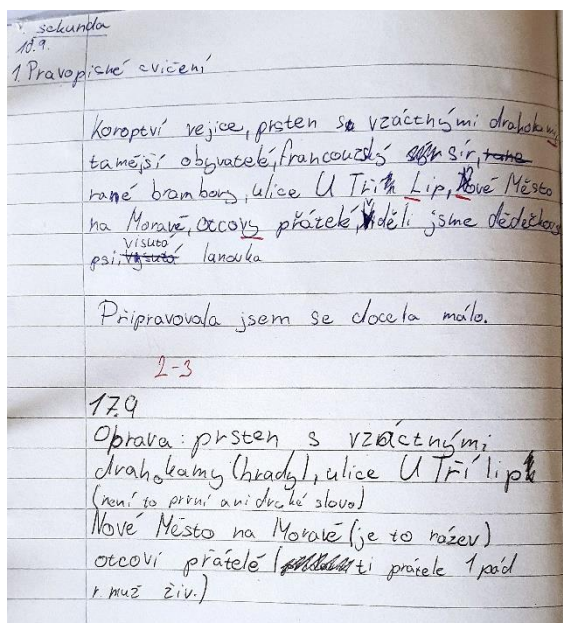 sekunda
18.9.
1. Pravopisné cvičení
Koroptví vejice, prsten s vzáctnými drahokami
tamější obyvatelé, francouzský sír,
rané brambory, ulice U Tří Lip, Nové Město
na Moravě, otcovy přátelé, Viděli jsme dědečkovy
visutá
psi, lanovka
Připravovala jsem se docela málo.
2-3
17.9
Oprava: prsten s vzáctnými
drahokamy (hrady), ulice U Tří lip
(není to první ani druhé slovo)
Nové Město na Moravě (je to název)
otcoví přátelé ( ti prátelé 1 pád
r. muž živ.)